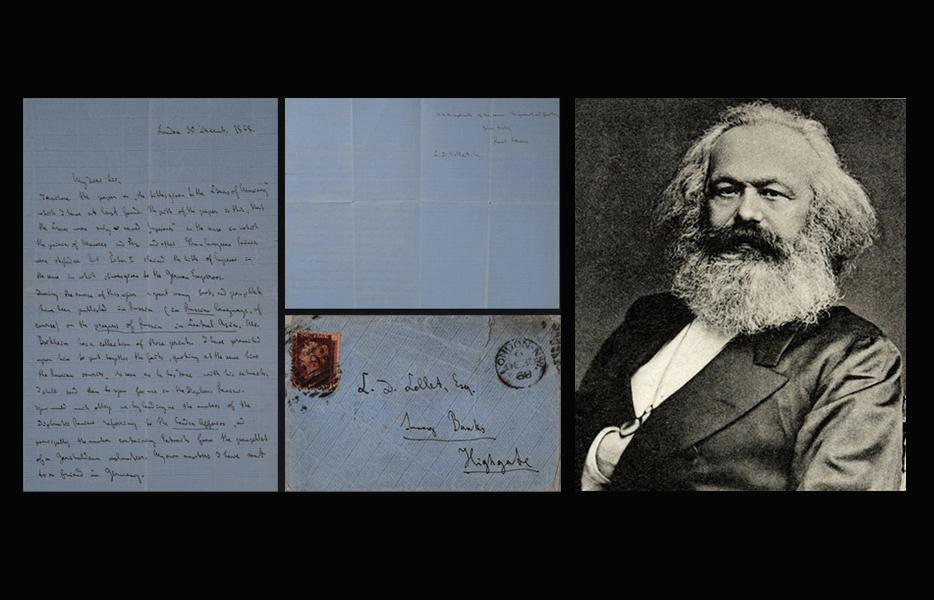 London 30 Decemb. 1868.
My dear Sir,
I enclose the paper on the titles given to the Dukes of Muscovy
which I have at last found. The pith of the paper is this, that
the were only "Emperors" in the sense in which
the princes of Morocco and Fez and other Non-European Princes
were but Peter I claimed the title of Emperor in
the sense in which it was given to the German Emperors.
During the course of this year a great many books and pamphlets
have been published in Russia (in Russian language, of
course) on the progress of Russia in Central Asia. Mr
Borkheim has a collection of those prints. I have prevailed
upon him to put together the facts, quoting at the same time
the Russian sources. As soon as he has done with his extracts,
I shall send them to you for use in the Diplom. Review.
You would much oblige me by lending me the numbers of the
Diplomatic Review referring to the Candia Affairs, and
principally the number containing Extracts from the pamphlet
of a Garibaldian volunteer. My own numbers I have sent
to a friend in Germany.
With the compliments of the season
Yours truly
Karl Marx
C. D. Collet, Esq.
LONDON-NW
68
C. D. Collet, Esq.
Sunny Banks
Highgate